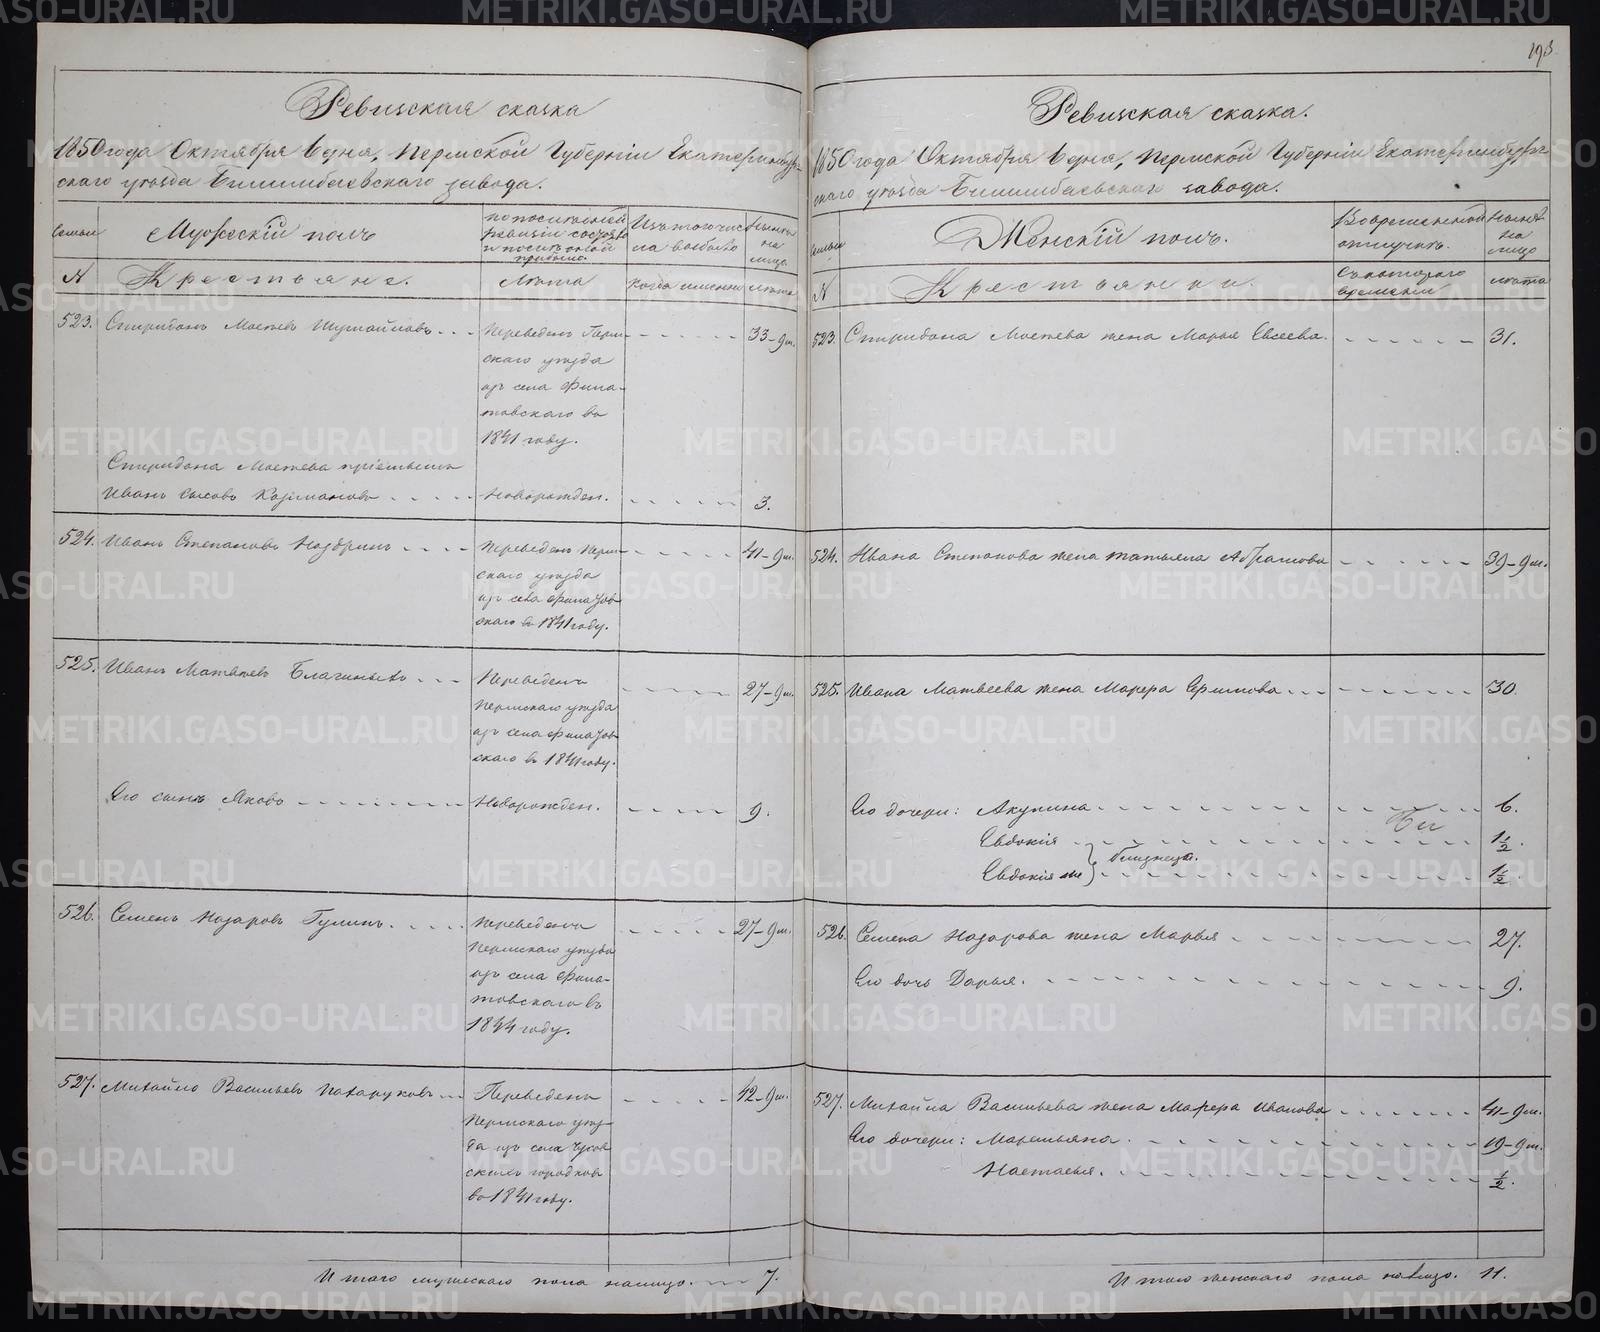 193
Ревизская сказка
1850 года Октября 6 дня, Пермской Губерніи Екатеринбург-
скаго уѣзда Билимбаевскаго завода.
Семьи
Мужескій полъ
По послѣдней
ревизіи состояло
и послѣ оной
прибыло.
Изъ того чис
ла выбыло
Нынѣ
на
лицо
N
Крестьяне.
Лѣта
Когда именно
Лѣта
523. Спиридонъ Моисеевъ
Переведенъ Перм-
33-9м.
скаго уѣзда
изъ села Фила-
товскаго въ
1841 году.
Спиридона Моисеева пріемышъ
Иванъ
Новорожден.
3.
524. Иванъ Степановъ Ноздринъ
Переведенъ Перм-
41-9м.
скаго уѣзда
изъ села Филатов-
скаго въ 1841 году.
525. Иванъ Матвѣевъ Блатиныхъ
Переведенъ
27-9м.
Пермскаго уѣзда
изъ села Филатов-
скаго въ 1841 году.
Его сынъ Яковъ
Новорожден.
9.
526. Семенъ Назаровъ Гулинъ
Переведенъ
27-9м.
Пермскаго уѣзда
изъ села Фила-
товскаго въ
1841 году.
527. Михайло Васильевъ Пахаруковъ
Переведенъ
42-9м.
Пермскаго уѣз-
да изъ села Чусов-
скихъ городковъ
въ 1841 году.
Итого мужескаго пола налицо. 7.
Ревизская сказка.
1850 года Октября 6 дня, Пермской Губерніи Екатеринбург-
скаго уѣзда Билимбаевскаго завода.
Семьи
Женскій полъ.
Во временной
отлучкѣ.
Нынѣ
на
лицо
N
Крестьянки.
Съ котораго
времени
Лѣта
523. Спиридона Моисеева жена Марья Евсеева.
31.
524. Ивана Степанова жена Татьяна Абрамова
39-9м.
525. Ивана Матвеева жена Марфа Ермилова
30.
Его дочери: Акулина
6.
Евдокія
1½.
Евдокія же
близнецы.
1½.
526. Семена Назарова жена Марья
27.
Его дочь Дарья.
9.
527. Михайла Васильева жена Марфа Иванова
41-9м.
Его дочери: Маремьяна.
19-9м.
Настасья.
½.
Итого женскаго пола налицо. 11.
METRIKI.GASO-URAL.RU